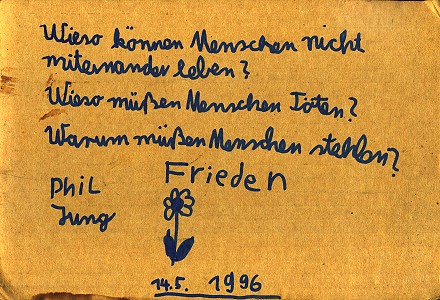 Wieso können Menschen nicht
miternander leben?
Wieso müßen Menschen Töten?
Warum müßen Menschen stehlen?
Frieden
Phil
Jung
14.5. 1996